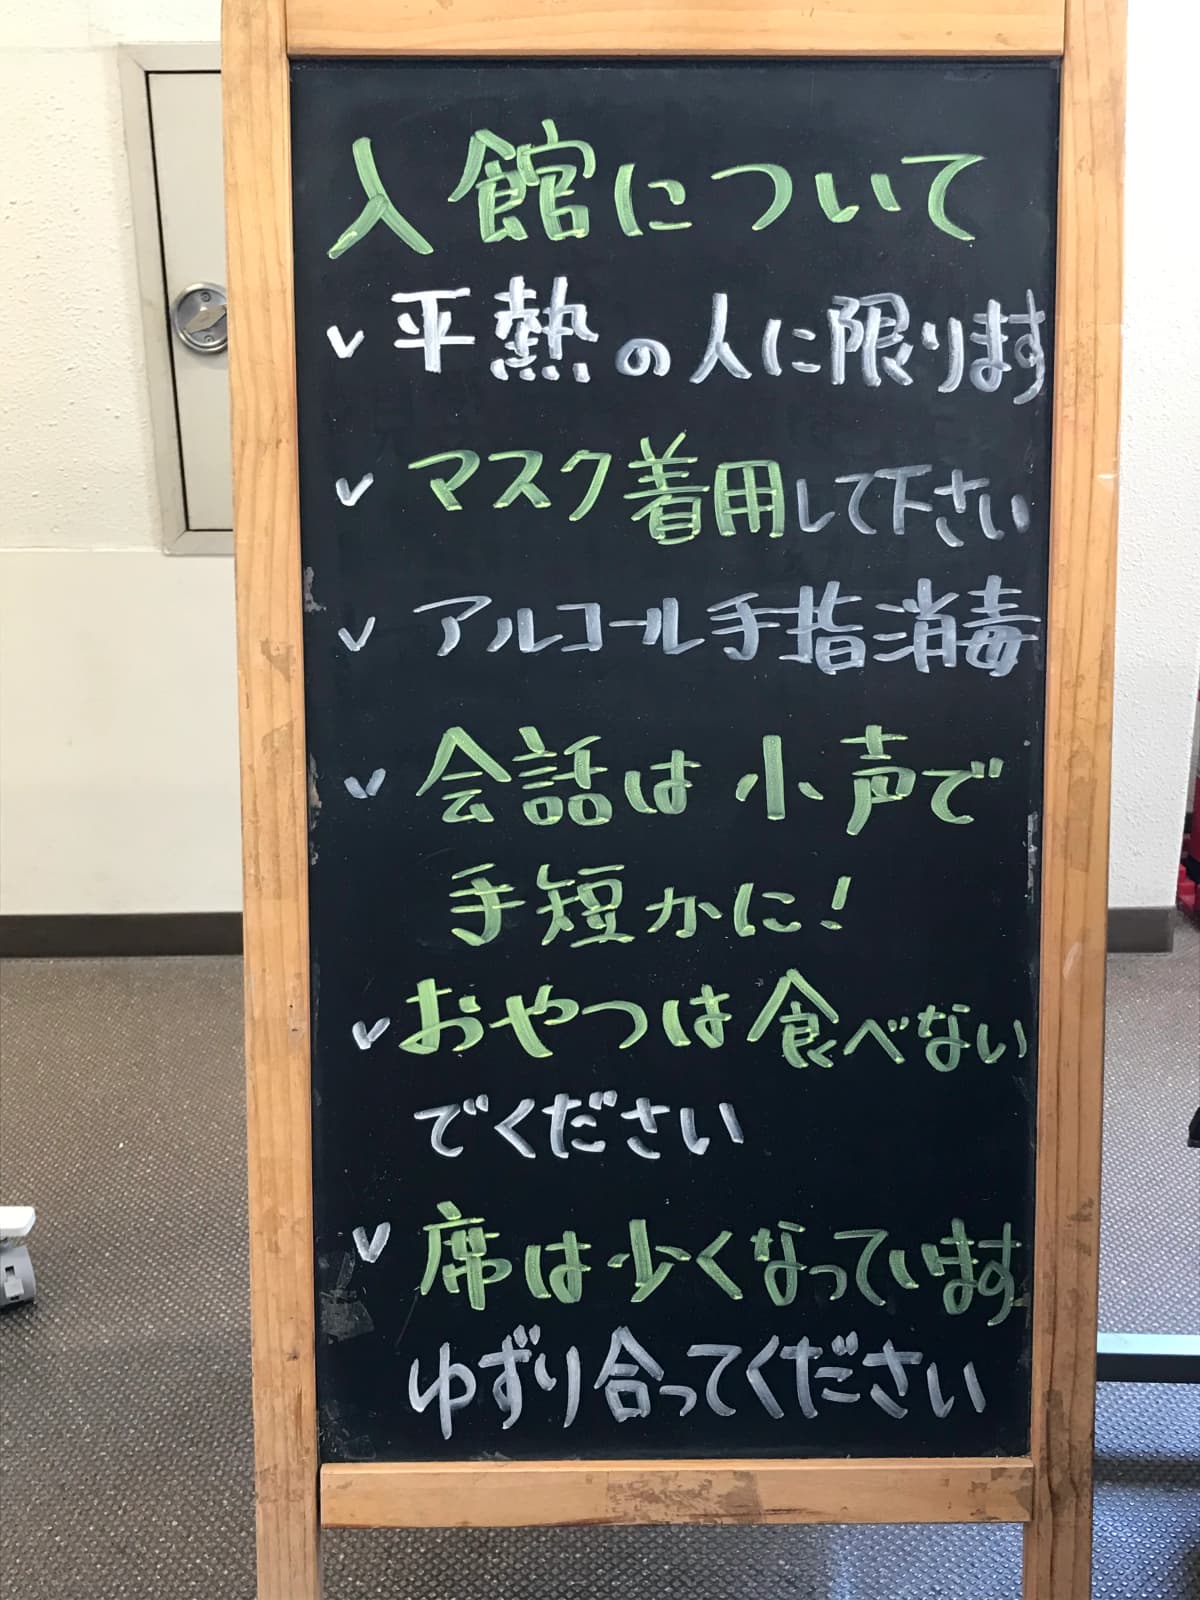 入館について
✓ 平熱の人に限ります
✓ マスク着用して下さい
✓ アルコール手指消毒
✓ 会話は小声で
手短かに!
✓ おやつは食べない
でください
✓ 席は少くなっています
ゆずり合ってください